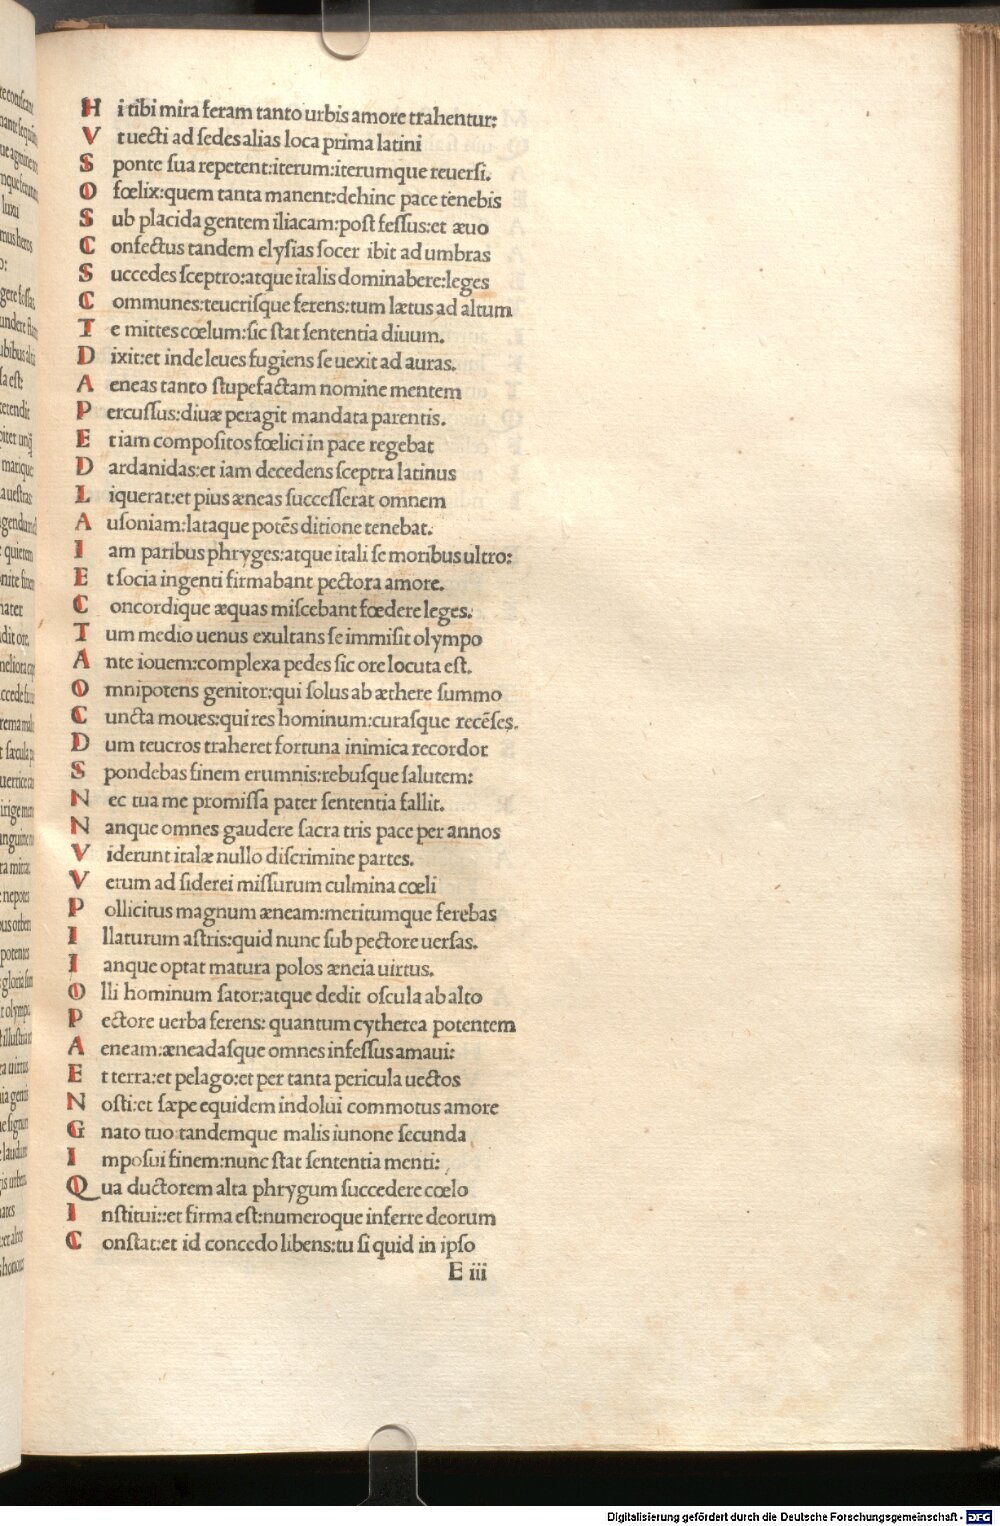 H i tibi mira feram tanto urbis amore trahentur:
V t uecti ad sedes alias loca prima latini
S ponte sua repetent:iterum:iterumque reuersi.
O fœlix:quem tanta manent:dehinc pace tenebis
S ub placida gentem iliacam:post fessus:et æuo
C onfectus tandem elysias socer ibit ad umbras
S uccedes sceptro:atque italis dominabere:leges
C ommunes:teucrisque ferens:tum lætus ad altum
T e mittes cœlum:sic stat sententia diuum.
D ixit:et inde leues fugiens se uexit ad auras.
A eneas tanto stupefactam nomine mentem
P ercussus:diuæ peragit mandata parentis.
E tiam compositos fœlici in pace regebat
D ardanidas:et iam decedens sceptra latinus
L iquerat:et pius æneas successerat omnem
A usoniam:lataque potẽs ditione tenebat.
I am paribus phryges:atque itali se moribus ultro:
E t socia ingenti firmabant pectora amore.
C oncordique æquas miscebant fœdere leges.
T um medio uenus exultans se immisit olympo
A nte iouem:complexa pedes sic ore locuta est.
O mnipotens genitor:qui solus ab æthere summo
C uncta moues:qui res hominum:curasque recẽses.
D um teucros traheret fortuna inimica recordor
S pondebas finem erumnis:rebusque salutem:
N ec tua me promissa pater sententia fallit.
N anque omnes gaudere sacra tris pace per annos
V iderunt italæ nullo discrimine partes.
V erum ad siderei missurum culmina cœli
P ollicitus magnum æneam:meritumque ferebas
I llaturum astris:quid nunc sub pectore uersas.
I anque optat matura polos æneia uirtus.
O lli hominum sator:atque dedit oscula ab alto
P ectore uerba ferens: quantum cytherea potentem
A eneam:æneadasque omnes infessus amaui:
E t terra:et pelago:et per tanta pericula uectos
N osti:et sæpe equidem indolui commotus amore
G nato tuo tandemque malis iunone secunda
I mposui finem:nunc stat sententia menti:
Q ua ductorem alta phrygum succedere cœlo
I nstitui::et firma est:numeroque inferre deorum
C onstat:et id concedo libens:tu si quid in ipso
E iii
Digitalisierung gefördert durch die Deutsche Forschungsgemeinschaft - DFG